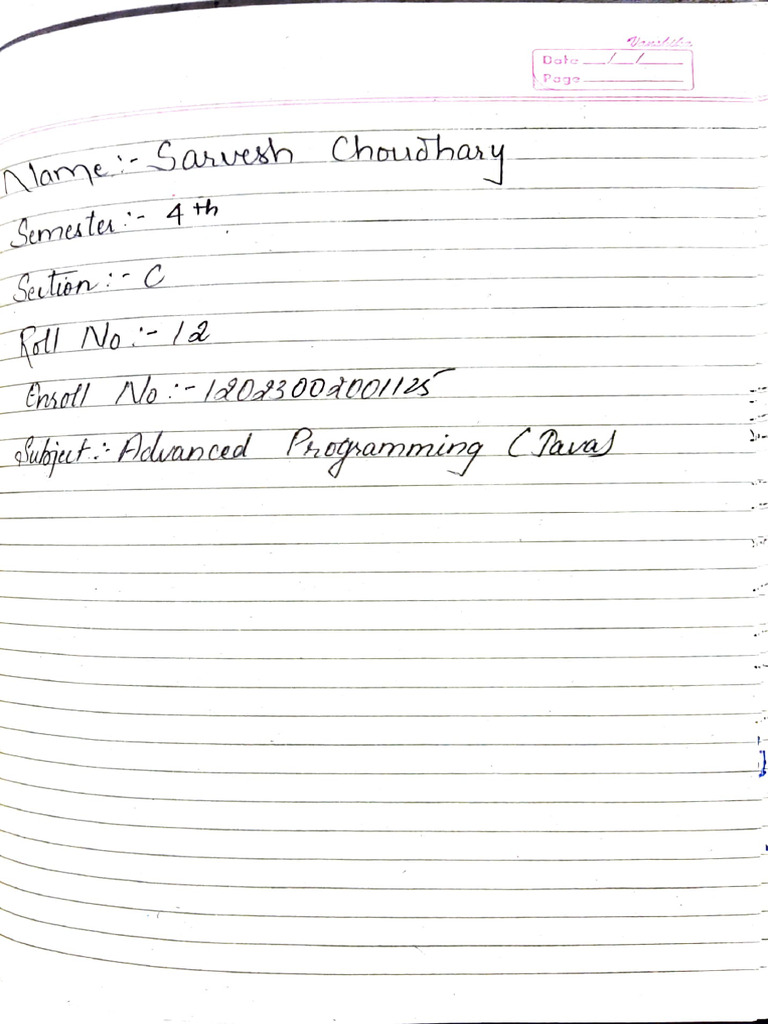 Date __/__/____
Page ________
Name:- Sarvesh Choudhary
Semester:- 4th
Section:- C
Roll No:- 12
Enroll No:- 12023002001125
Subject:- Advanced Programming (Java)